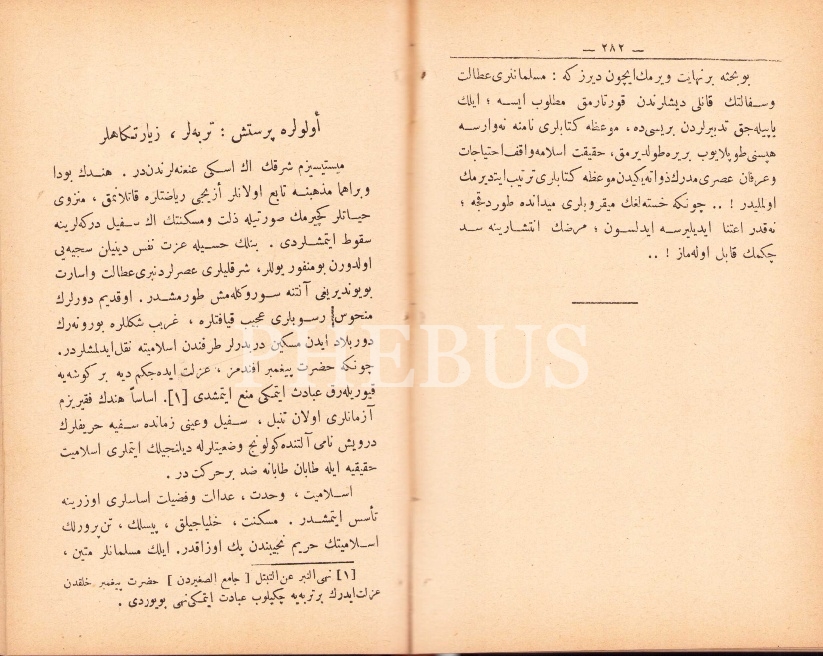 — ٢٨٢ —
بو بحثه بر نهایت ویرمك ایچون دیرز كه : مسلمانلری عطالت
وسفالتك قانلی دیشلرندن قورتارمق مطلوب ایسه ؛ ایلك
یاپیله‌جق تدبیرلردن بریسی ده ، موعظه كتابلری نامنه نه‌وارسه
هپسنی طوپلایوب بریره طولدیرمق ، حقیقت اسلامه واقف احتیاجات
وعرفان عصری مدرك ذواته یكیدن موعظه كتابلری ترتیب ایتدیرمك
اولملیدر ! .. چونكه خسته‌لغك میقروبلری میدانده طوردقجه ؛
نه‌قدر اعتنا ایدیلیرسه ایدلسون ؛ مرضك انتشارینه سد
چكمك قابل اوله‌ماز ! ..
أولولره پرستش : تربه‌لر ، زیارتگاهلر
میستیسیزم شرقك اك اسكی عنعنه‌لرندن‌در . هندك بودا
وبراهما مذهبنه تابع اولانلر أزیجی ریاضتلره قاتلانمق ، منزوی
حیاتلر كچیرمك صورتیله ذلت ومسكنتك اك سفیل دركه‌لرینه
سقوط ایتمشلردی . بنلك حسیله عزت نفس دینیلن سجیه‌یی
اولدورن بومنفور یوللر ، شرقلیلری عصرلردنبری عطالت واسارت
بویوندیریغی آلتنه سوروكله‌مش طورمشدر . اوقدیم دورلرك
منحوس رسوبلری عجیب قیافتلره ، غریب شكللره بورونه‌رك
دوربلاد ایدن مسكین دربدرلر طرفندن اسلامیته نقل ایدلمشلردر.
چونكه حضرت پیغمبر افندمز ، عزلت ایده‌جكم دیه بر كوشه‌یه
قیوریله‌رق عبادت ایتمكی منع ایتمشدی [١]. اساساً هندك فقیریزم
آزمانلری اولان تنبل ، سفیل وعینی زمانده سفیه حریفلرك
درویش نامی آلتنده كولونج وضعیتلرله دیلنجیلك ایتملری اسلامیت
حقیقیه ایله طابان طابانه ضد بر حركت در .
اسلامیت ، وحدت ، عدالت وفضیلت اساسلری اوزرینه
تأسس ایتمشدر . مسكنت ، خلیاجیلق ، پیسلك ، تن‌پرورلك
اسلامیتك حریم نجیبندن پك اوزاقدر. ایلك مسلمانلر متین ،
[١] نهی النبر عن التبتل [ جامع الصغیردن ] حضرت پیغمبر خلقدن
عزلت ایدرك بر تربه‌یه چكیلوب عبادت ایتمكی نهی بویوردی .
PHEBUS